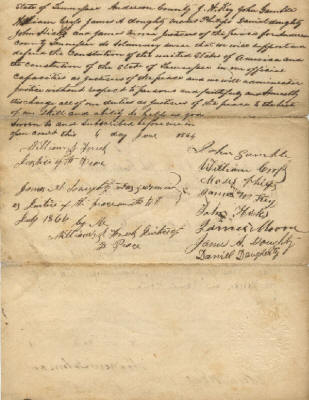 State of Tennessee Anderson County I. H. Key John Gamble
William Cross James A Doughty Moses Phillips Daniel Daugherty
John Hicks and James Moore justices of the peace for Anderson
County Tennessee do solemnly swear that we will support and
defend the Constitution of the united States of America and
the constitution of the State of Tennessee in our official
capacities as justices of the peace and we will administer
justice without respect to persons and faithfully and honestly
discharge all of our duties as justices of the peace to the best
of our skill and ability so help us god
Sworn to and subscribed before me in
open court this 6 day June 1864
William J. Frick
Justice of the Peace
James A Doughty was sworn
as Justice of the peace on the
July 1866 by Me
William J Frick Justice of
the Peace
John Gamble
William Cross
Moses Phillips
James H Key
John Hicks
James Moore
James A. Doughty
Daniel Daugherty